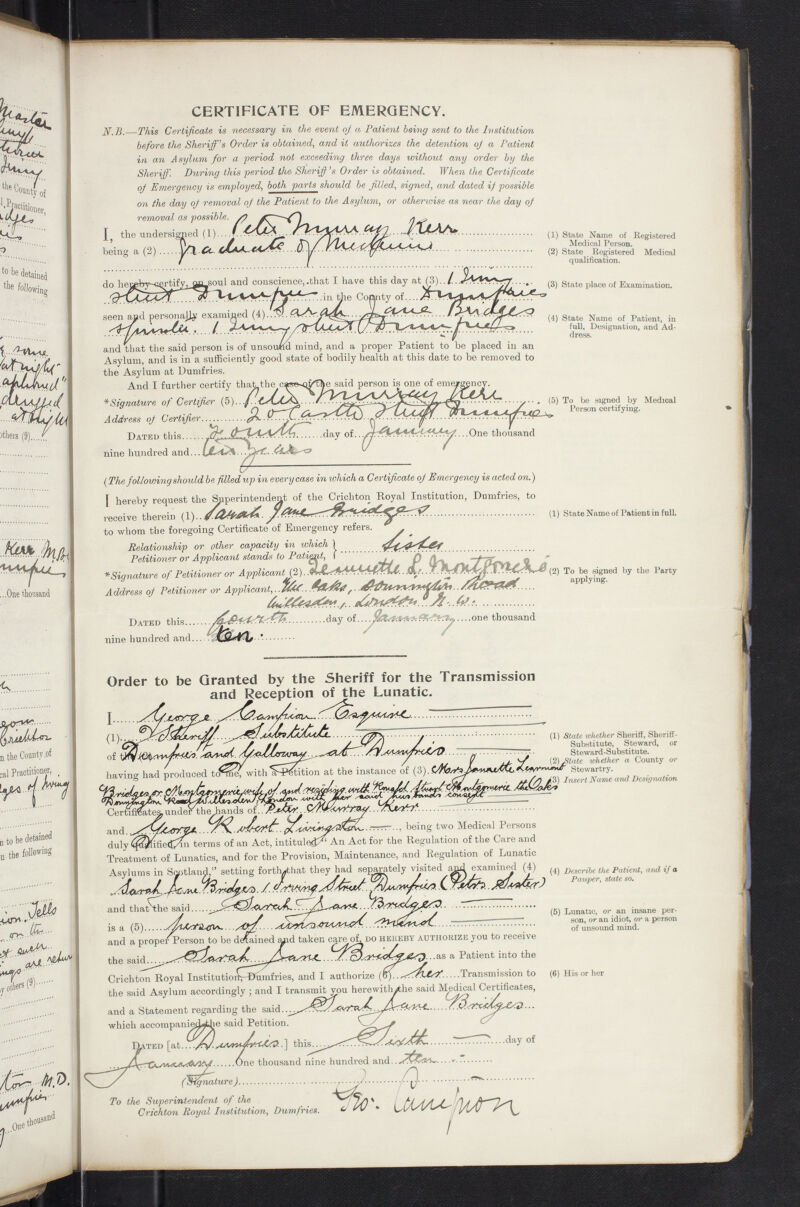 CERTIFICATE OF EMERGENCY.
N.B.—This Certificate is necessary in the event of a Patient being sent to the Institution
before the Sheriff's Order is obtained, and it authorizes the detention of a Patient
in an Asylum for a period not exceeding three days without any order by the
Sheriff. During this period the Sheriff's Order is obtained. When the Certificate
of Emergency is employed, both parts should be filled, signed, and dated if possible
on the day of removal of the Patient to the Asylum, or otherwise as near the day of
removal as possible.
I, the undersigned (1) Peter Murray Kerr
(1) State Name of Registered
Medical Person.
being a (2) Graduate of Medicine
(2) State Registered Medical
qualification.
do hereby certify, on soul and conscience, that I have this day at (3) 1 Irving
(3) State place of Examination.
Street Dumfries in the County of Dumfries
seen and personally examined (4) Sarah Jane Bridges
(4) State Name of Patient, in
full, Designation, and Ad-
dress.
Spinster. 1 Irving Street Dumfries
and that the said person is of unsound mind, and a proper Patient to be placed in an
Asylum, and is in a sufficiently good state of bodily health at this date to be removed to
the Asylum at Dumfries.
And I further certify that the case of the said person is one of emergency.
*Signature of Certifier (5) Peter Murray Kerr
(5) To be signed by Medical
Person certifying.
Address of Certifier 20 Castle Street Dumfries
DATED this Fourth day of January One thousand
nine hundred and ten years
(The following should be filled up in every case in which a Certificate of Emergency is acted on.)
I hereby request the Superintendent of the Crichton Royal Institution, Dumfries, to
receive therein (1) Sarah Jane Bridges
(1) State Name of Patient in full.
to whom the foregoing Certificate of Emergency refers.
Relationship or other capacity in which
Petitioner or Applicant stands to Patient, } Sister
*Signature of Petitioner or Applicant (2) Jeannette L. Montgomerie
(2) To be signed by the Party
applying.
Address of Petitioner or Applicant, The Oaks, Donnington Road
Willesden, London N.W.
DATED this fourth day of January one thousand
nine hundred and ten.
Order to be Granted by the Sheriff for the Transmission
and Reception of the Lunatic.
I George Campion Esquire
(1) Sheriff Substitute
(1) State whether Sheriff, Sheriff-
Substitute, Steward, or
Steward-Substitute.
of Dumfries and Galloway at Dumfries
(2) State whether a County or
Stewartry.
having had produced to me, with a Petition at the instance of (3) Mrs Jeannette Learmond
(3) Insert Name and Designation
Bridges or Montgomerie, wife of and residing with Ronald Stuart Montgomerie The Oaks
Donnington Road Willesden, London with her said husband's consent
Certificates under the hands of Peter Murray Kerr
and George Robert Livingston, being two Medical Persons
duly qualified, in terms of an Act, intituled "An Act for the Regulation of the Care and
Treatment of Lunatics, and for the Provision, Maintenance, and Regulation of Lunatic
Asylums in Scotland," setting forth that they had separately visited and examined (4)
(4) Describe the Patient, and if a
Pauper, state so.
Sarah Jane Bridges 1 Irving Street Dumfries (Petrs. Sister)
and that the said Sarah Jane Bridges
is a (5) person of unsound mind
(5) Lunatic, or an insane per-
son, or an idiot, or a person
of unsound mind.
and a proper Person to be detained and taken care of, DO HEREBY AUTHORIZE you to receive
the said Sarah Jane Bridges as a Patient into the
Crichton Royal Institution, Dumfries, and I authorize (6) her Transmission to
(6) His or her
the said Asylum accordingly; and I transmit you herewith the said Medical Certificates,
and a Statement regarding the said Sarah Jane Bridges
which accompanied the said Petition.
DATED [at Dumfries.] this Sixth day of
January One thousand nine hundred and ten
(Signature)
Geo. Campion
To the Superintendent of the
Crichton Royal Institution, Dumfries.